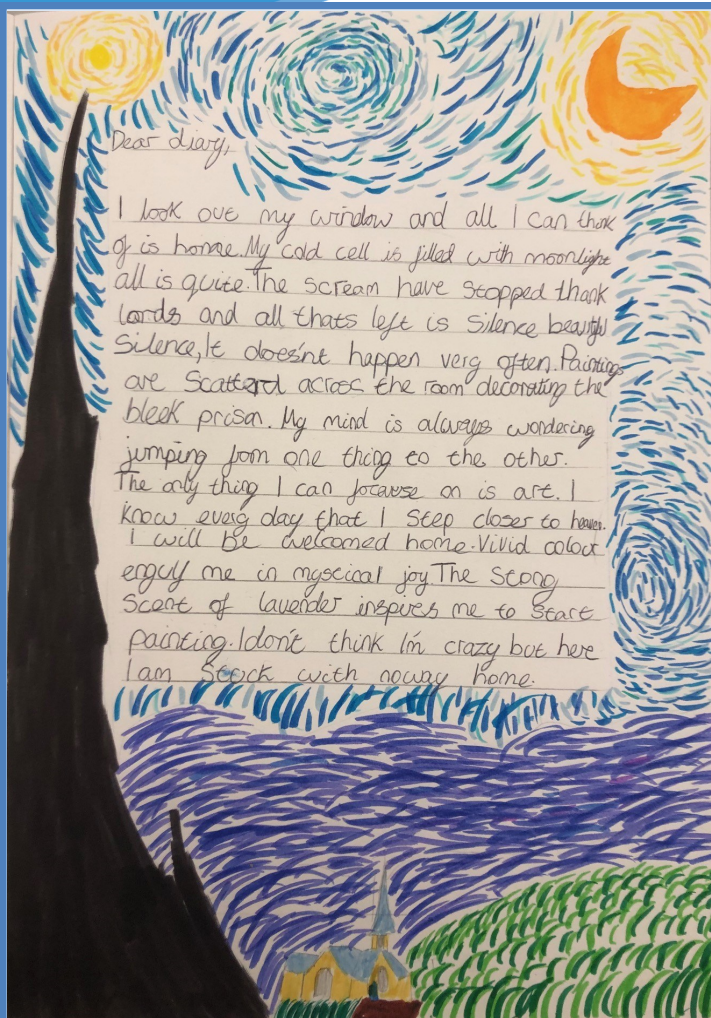 Dear diary,
I look out my window and all I can think
of is home. My cold cell is filled with moonlight
all is quite. The scream have stopped thank
lords and all thats left is silence beautiful
silence, It doesn't happen very often. Paintings
are scatterd across the room decorating the
bleek prison. My mind is always wondering
jumping from one thing to the other.
The only thing I can focause on is art. I
know every day that I step closer to heaven.
I will be welcomed home. Vivid colour
engulf me in myscical joy The stong
scent of lavender inspires me to start
painting. I don't think I'm crazy but here
I am stock with noway home.